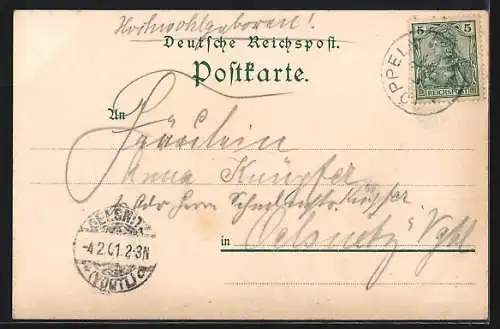 Hochwohlgeboren!
Deutsche Reichspost.
Postkarte.
5 5
REICHSPOST
ÖPPEL
An
Fräulein
Anna Knüpfer
Adr. Herrn Knüpfer
in Oelsnitz Vgtl
OELSNITZ
-4.2.01.2-3N
(VOGTL.)